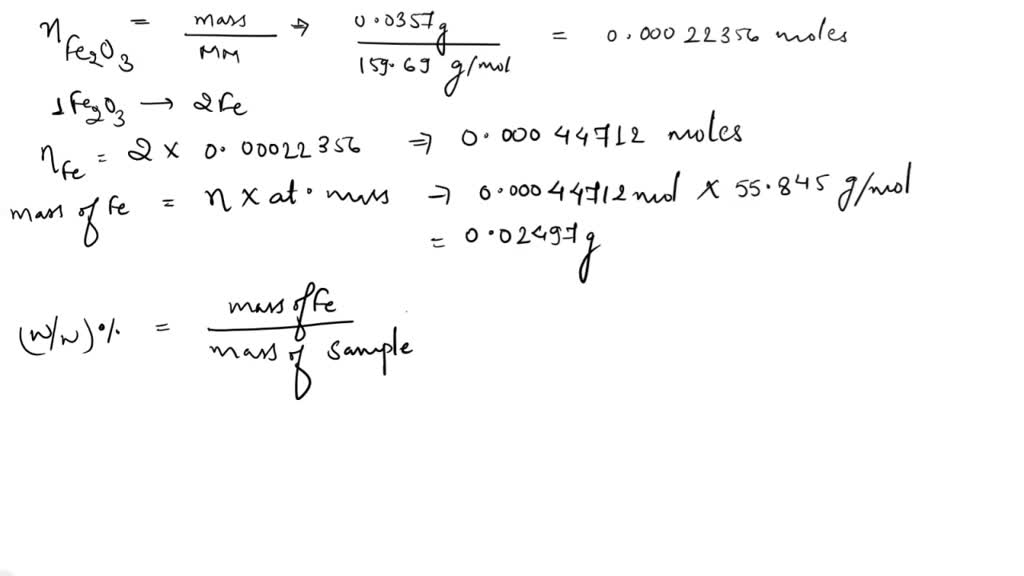 nFe2O3 = mass / MM ⇒ 0.0357g / 159.69 g/mol = 0.00022356 moles
1Fe2O3 → 2Fe
nFe = 2 × 0.00022356 ⇒ 0.00044712 moles
mass of Fe = n × at. mass → 0.00044712 mol × 55.845 g/mol
= 0.02497g
(w/w)% = mass of Fe / mass of sample